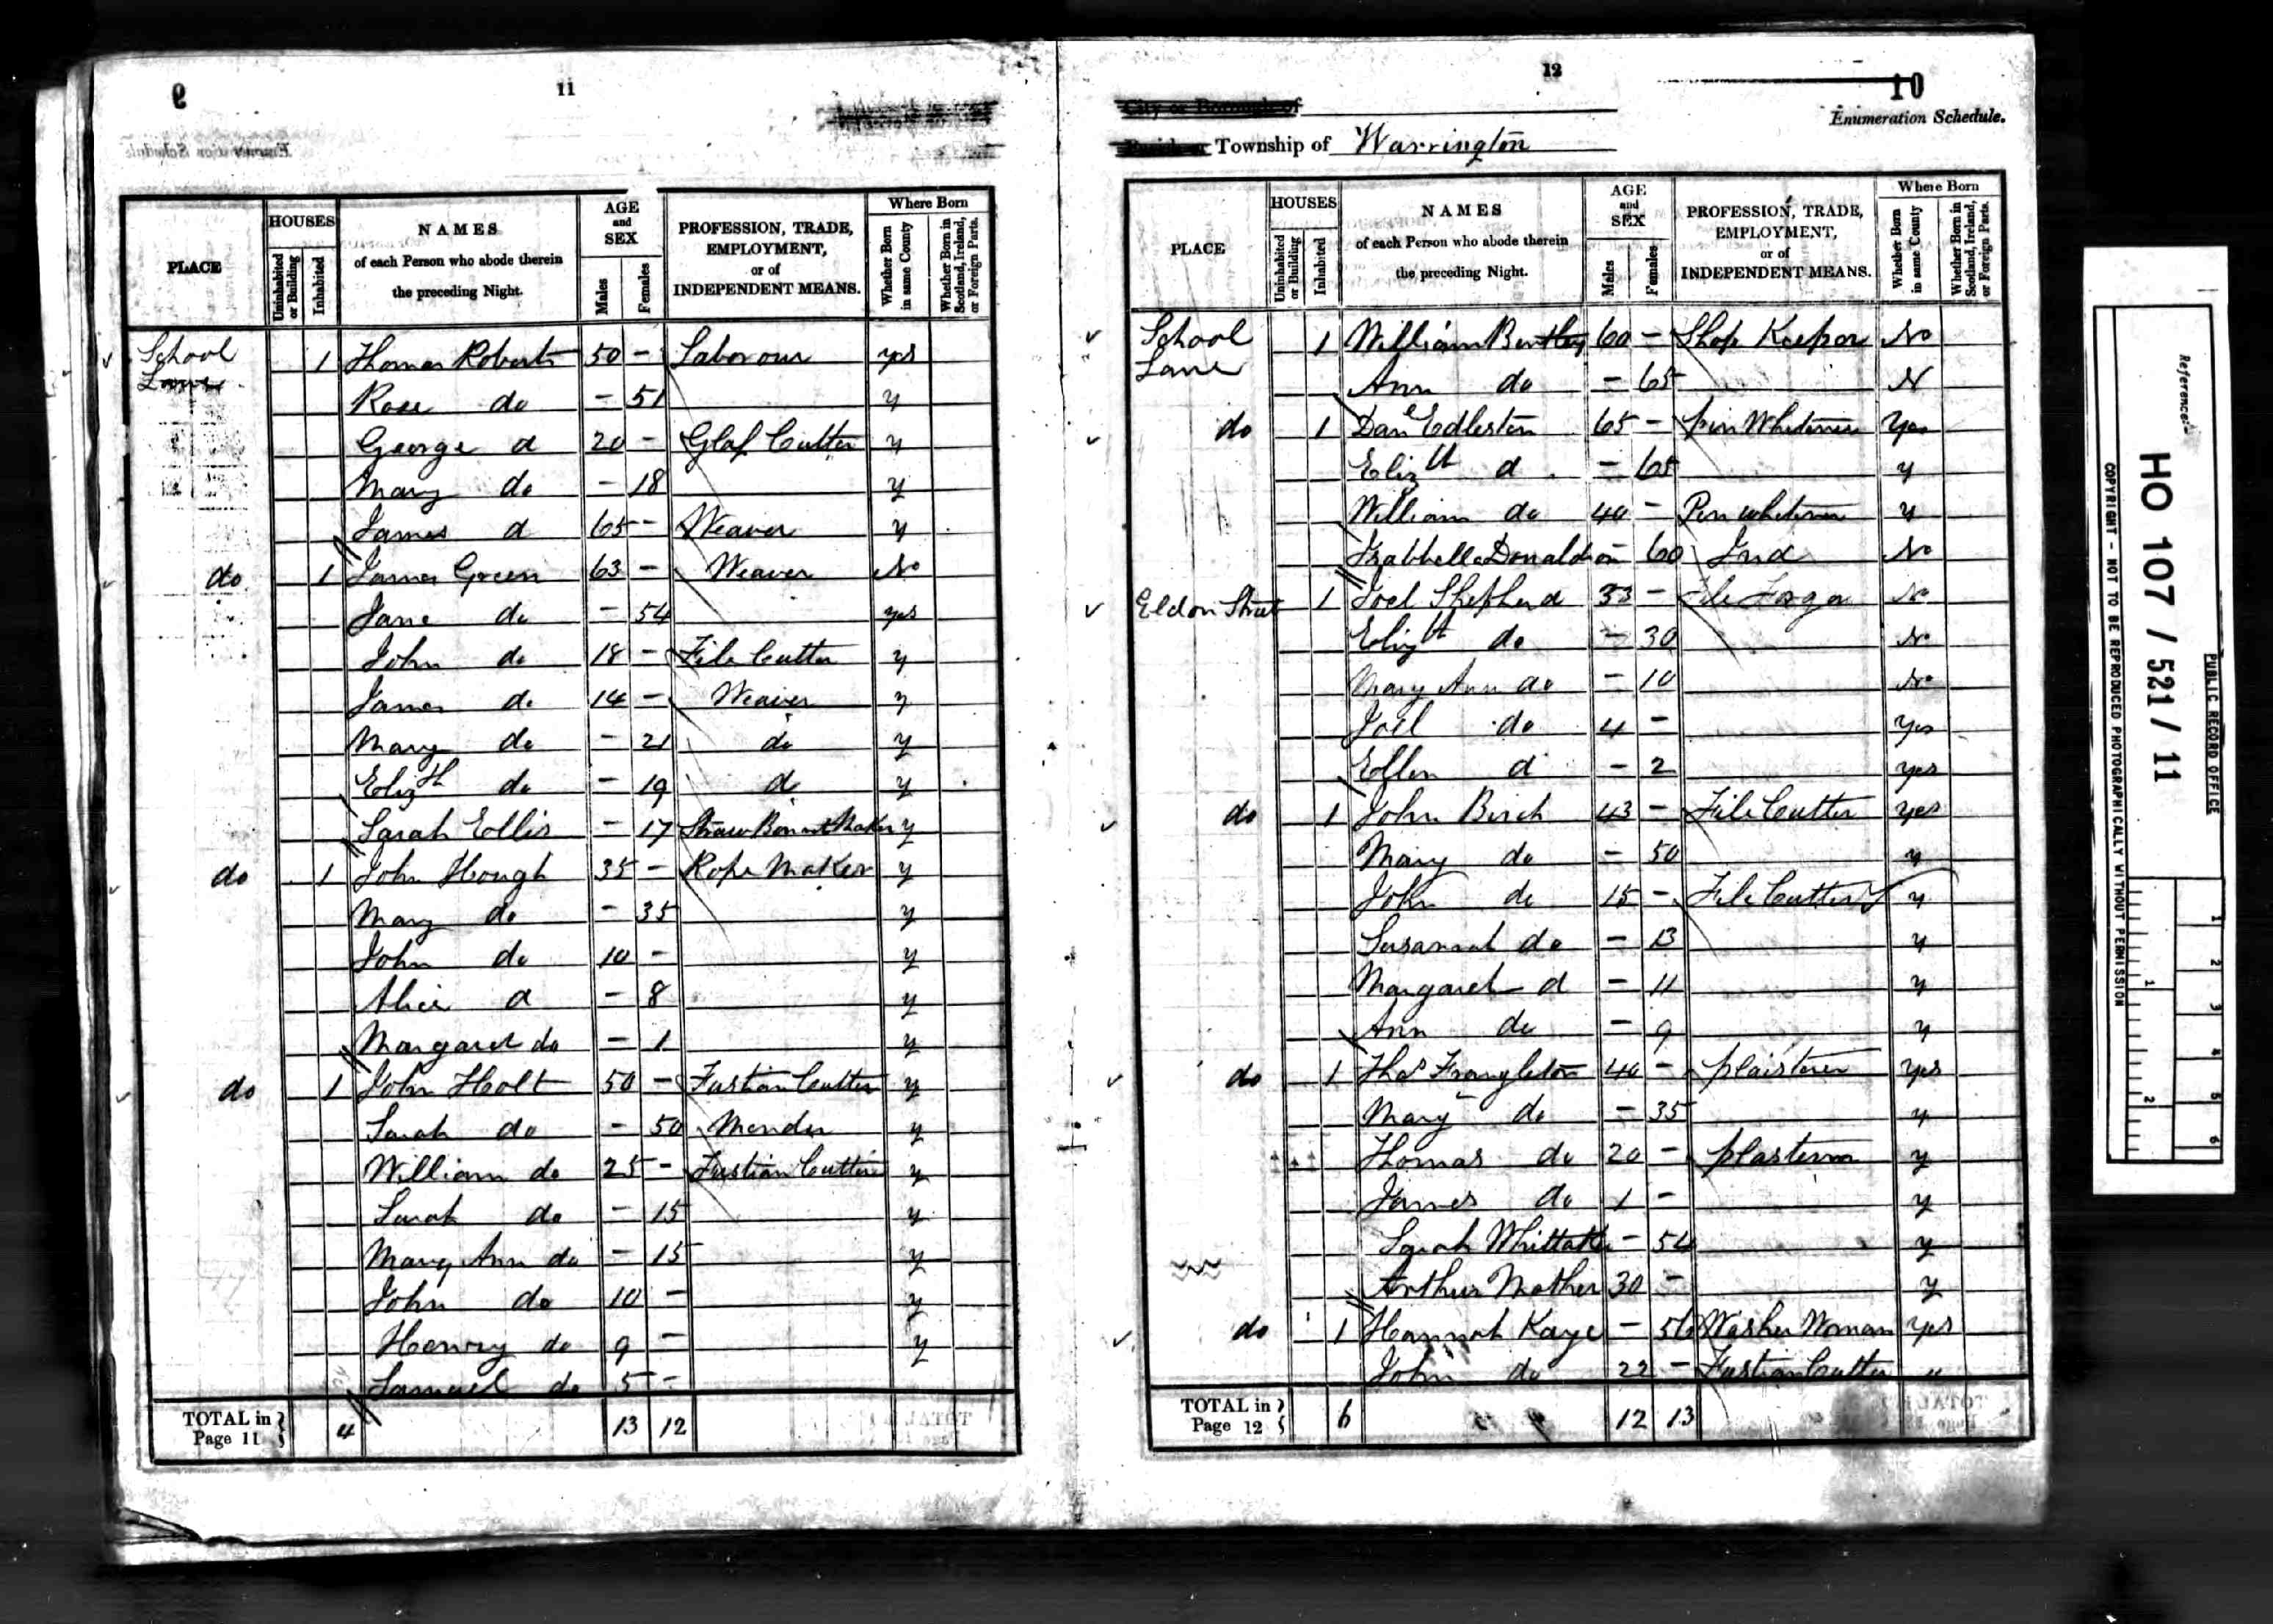 9
11
PLACE
HOUSES
Uninhabited or Building
Inhabited
NAMES
of each Person who abode therein
the preceding Night.
AGE
and
SEX
Males
Females
PROFESSION, TRADE,
EMPLOYMENT,
or of
INDEPENDENT MEANS.
Where Born
Whether Born in same County
Whether Born in Scotland, Ireland, or Foreign Parts.
School Lane 1 Thomas Roberts 50 - Labourour yes
Rose do - 51 y
George d 20 - Glaſs Cutter y
Mary do - 18 y
James d 65 - Weaver y
do 1 James Green 63 - Weaver No
Jane do - 54 yes
John do 18 - File Cutter y
James do 14 - Weaver y
Mary do - 21 do y
Elizth do - 19 do y
Sarah Ellis - 17 Straw Bonnet Maker y
do 1 John Hough 35 - Rope Maker y
Mary do - 35 y
John do 10 - y
Alice d - 8 y
Margaret do - 1 y
do 1 John Holt 50 - Fustian Cutter y
Sarah do - 50 Mender y
William do 25 - Fustian Cutter y
Sarah do - 15 y
Mary Ann do - 15 y
John do 10 - y
Henry do 9 - y
Samuel do 5 -
TOTAL in Page 11 4 13 12
12
10
City or Borough of
Enumeration Schedule.
Parish or Township of Warrington
PLACE
HOUSES
Uninhabited or Building
Inhabited
NAMES
of each Person who abode therein
the preceding Night.
AGE
and
SEX
Males
Females
PROFESSION, TRADE,
EMPLOYMENT,
or of
INDEPENDENT MEANS.
Where Born
Whether Born in same County
Whether Born in Scotland, Ireland, or Foreign Parts.
School Lane 1 William Bentley 60 - Shop Keeper No
Ann do - 65 N
do 1 Danl Edleston 65 - Pin Whitener Yes
Elizth d - 65 y
William do 40 - Pin whitener y
Izabbella Donaldson - 60 Ind No
Eldon Street 1 Joel Shepherd 33 - File Forger No
Elizth do - 30 No
Mary Ann do - 10 No
Joel do 4 - Yes
Ellen d - 2 yes
do 1 John Birch 43 - File Cutter yes
Mary do - 50 y
John do 15 - File Cutter y
Susannah do - 13 y
Margaret d - 11 y
Ann do - 9 y
do 1 Thos Frangleton 40 - plaisterer yes
Mary do - 35 y
Thomas do 20 - plasterer y
James do 1 - y
Sarah Whittaker - 54 y
Arthur Mather 30 - y
do 1 Hannah Kaye - 56 Washer Woman yes
John do 22 - Fustian Cutter "
TOTAL in Page 12 6 12 13
Reference:-
HO 107 / 521 / 11
PUBLIC RECORD OFFICE
COPYRIGHT - NOT TO BE REPRODUCED PHOTOGRAPHICALLY WITHOUT PERMISSION
1 2
1 2 3 4 5 6